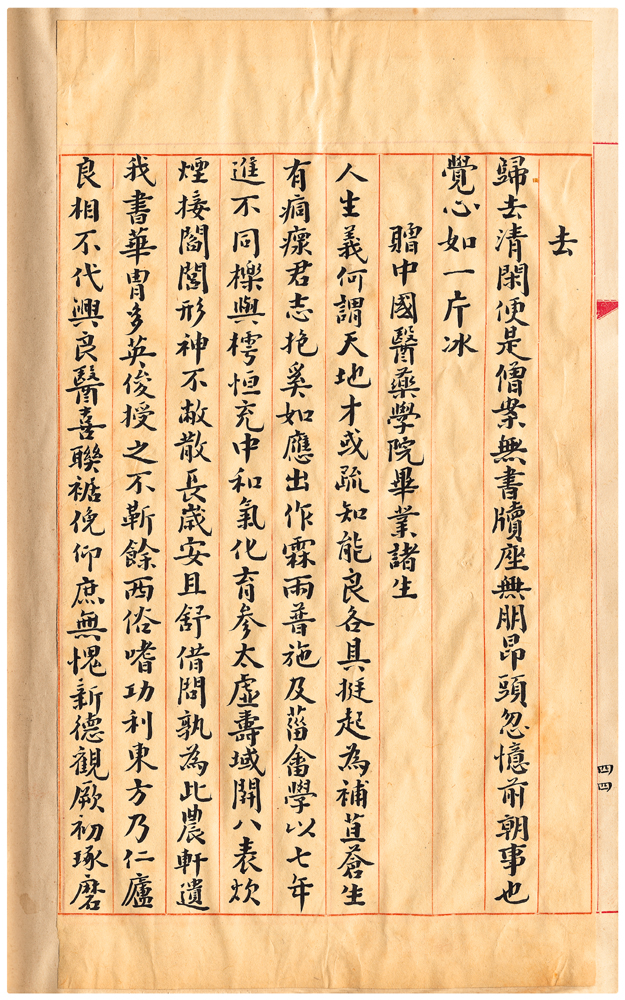 去
歸去清閑便是僧案無書牘座無朋昂頭忽憶前朝事也
覺心如一片冰
贈中國醫藥學院畢業諸生
人生義何謂天地才或疏知能良各具挺起為補苴蒼生
有痌瘝君志抱奚如應出作霖雨普施及菑畬學以七年
進不同櫟與樗恒充中和氣化育參太虛壽域開八表炊
煙接閻閭形神不敝散長歲安且舒借問孰為此農軒遺
我書華胄多英俊授之不靳餘西俗嗜功利東方乃仁廬
良相不代興良醫喜聯裾俛仰庶無愧新德觀厥初琢磨
四四